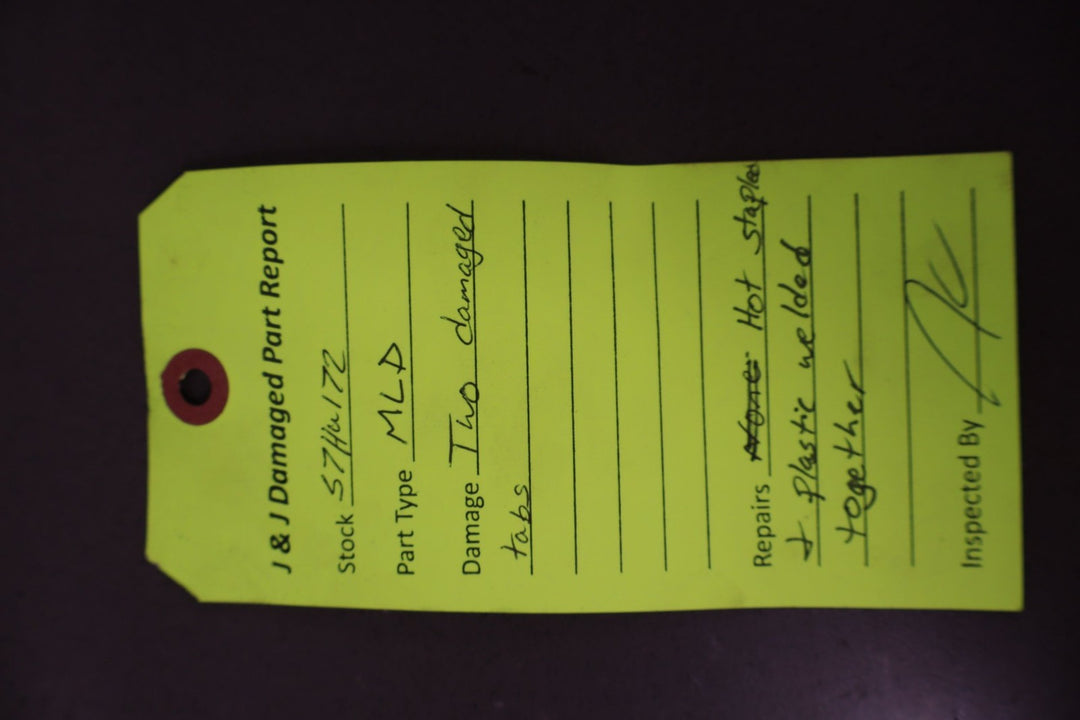 J & J Damaged Part Report
Stock 57Hu172
Part Type MLD
Damage Two damaged
tabs
Repairs None Hot staples
& Plastic welded
together
Inspected By